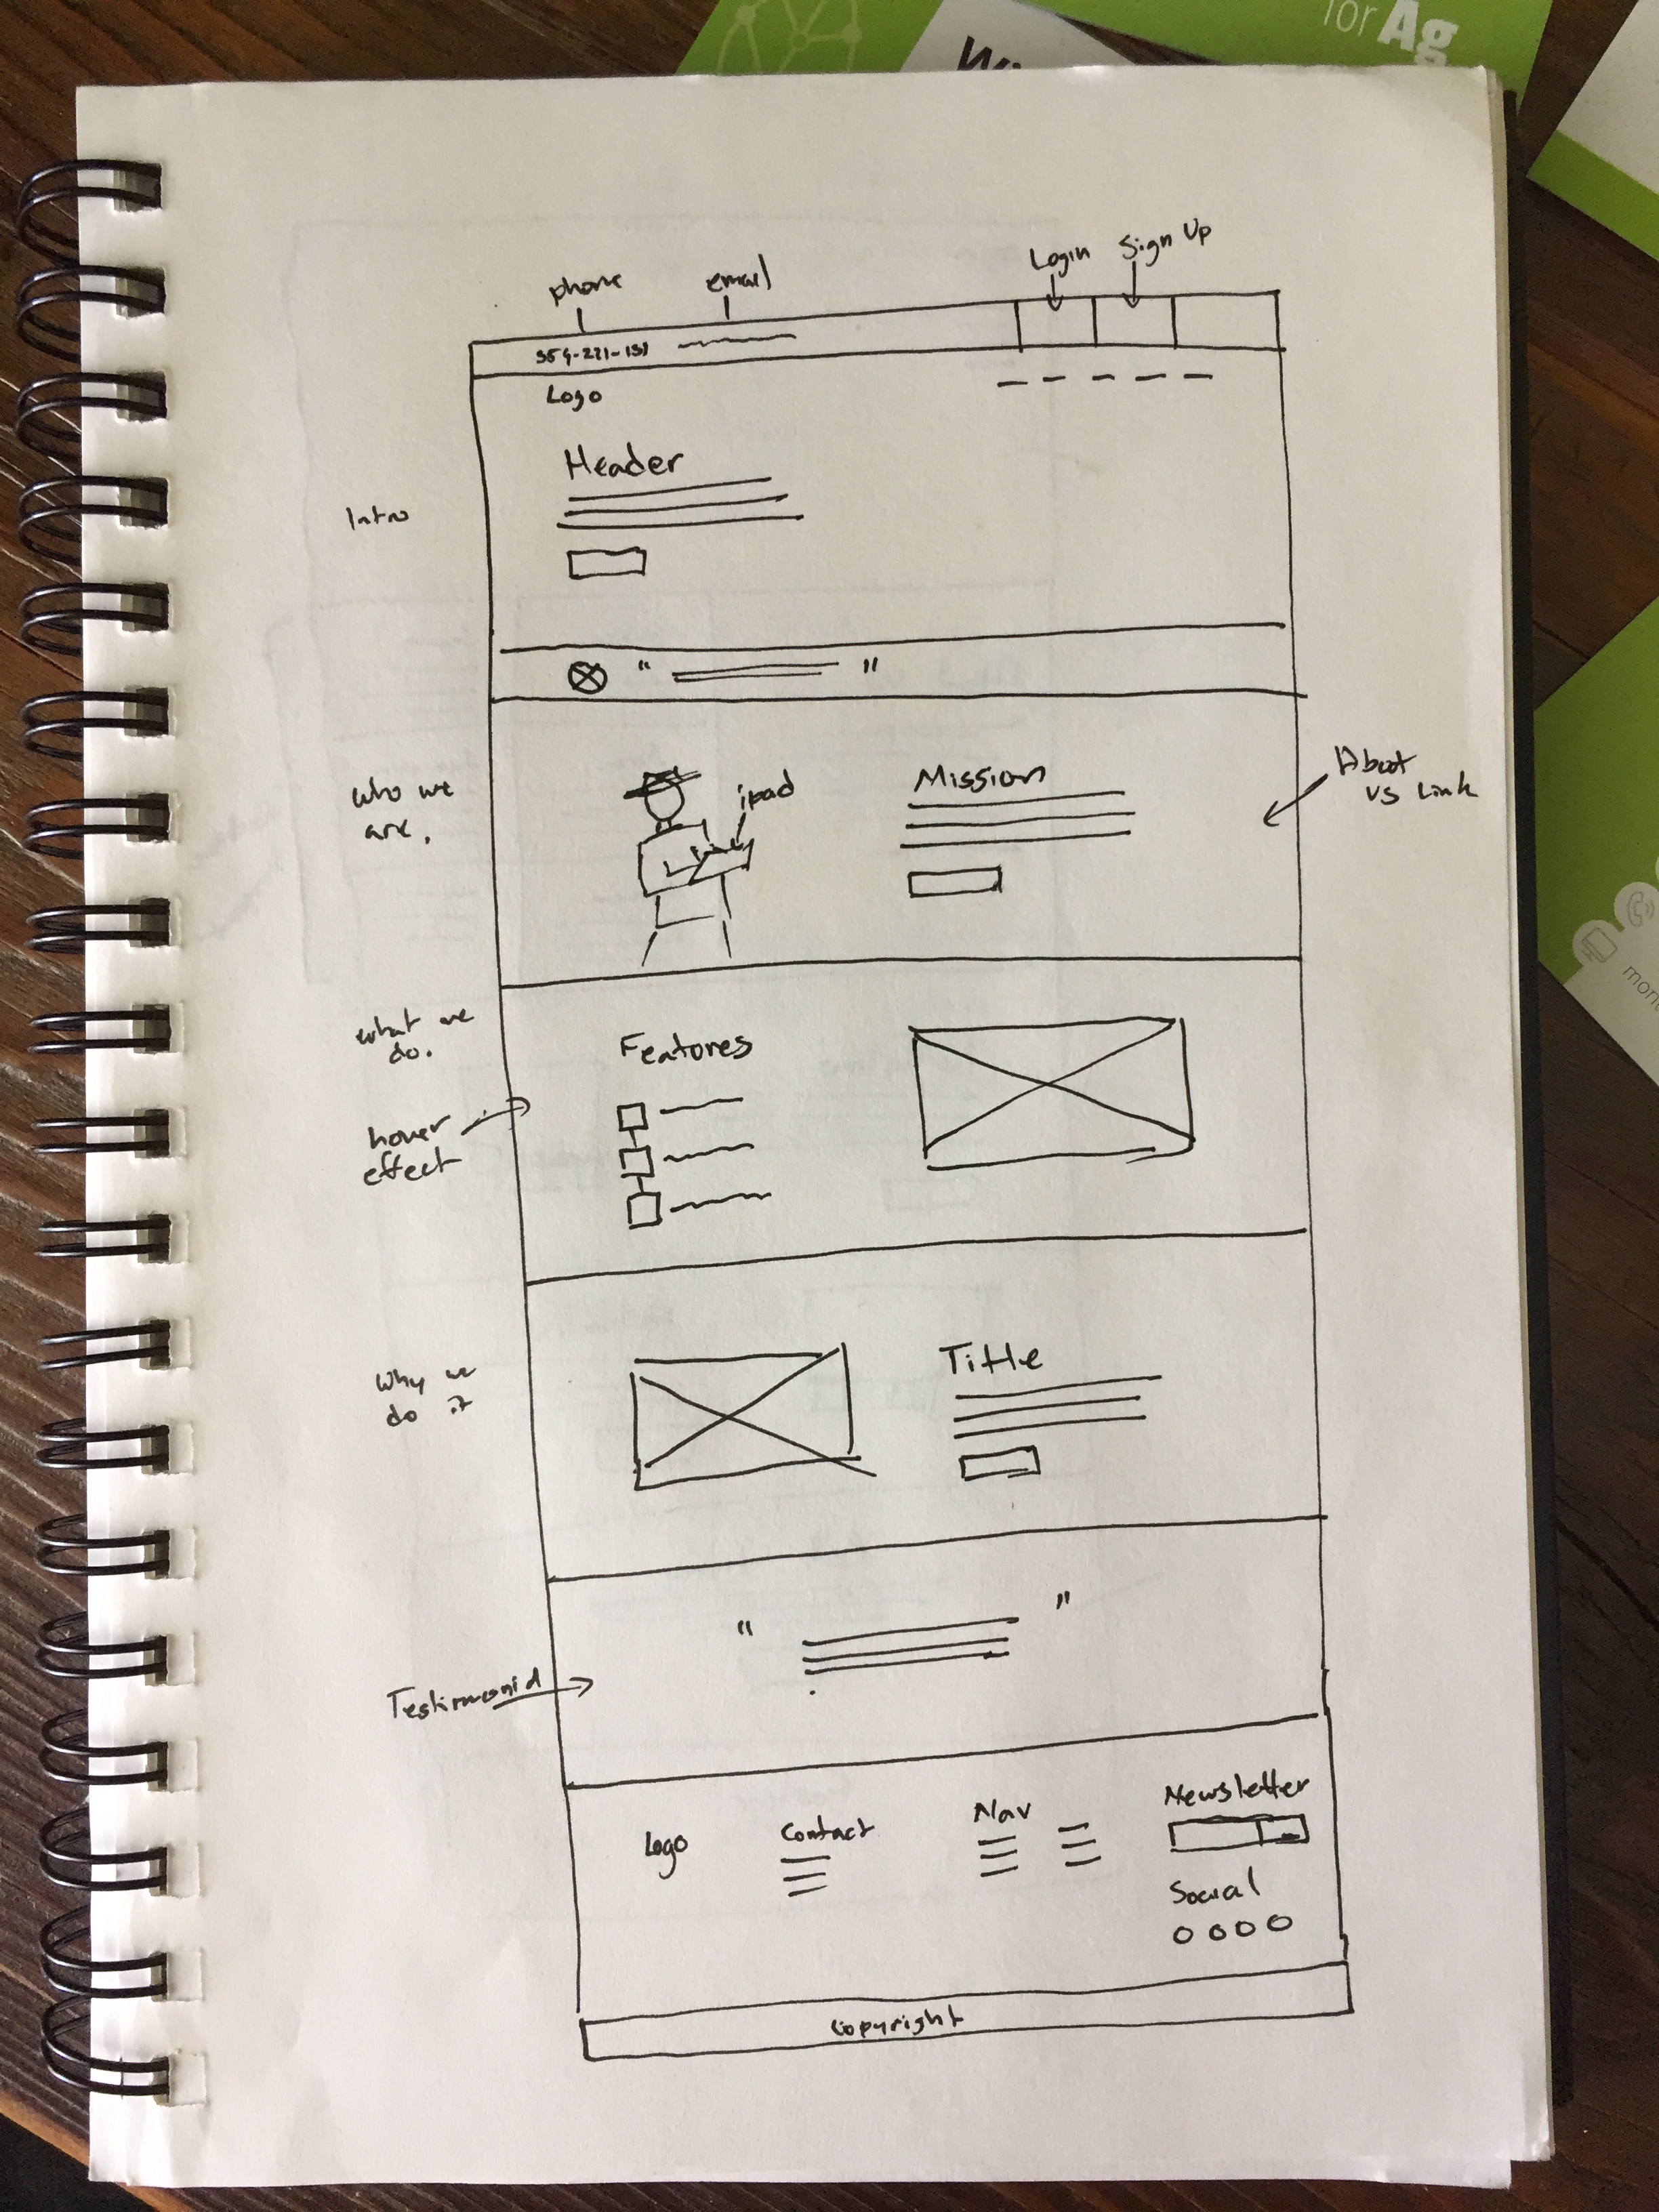 for Ag
phone
email
Login
Sign Up
Logo
Header
Intro
"
"
who we
are.
ipad
Mission
About
us Link
what we
do.
Features
hover
effect
Why we
do it
Title
"
"
Testimonial
Logo
Contact
Nav
Newsletter
Social
Copyright